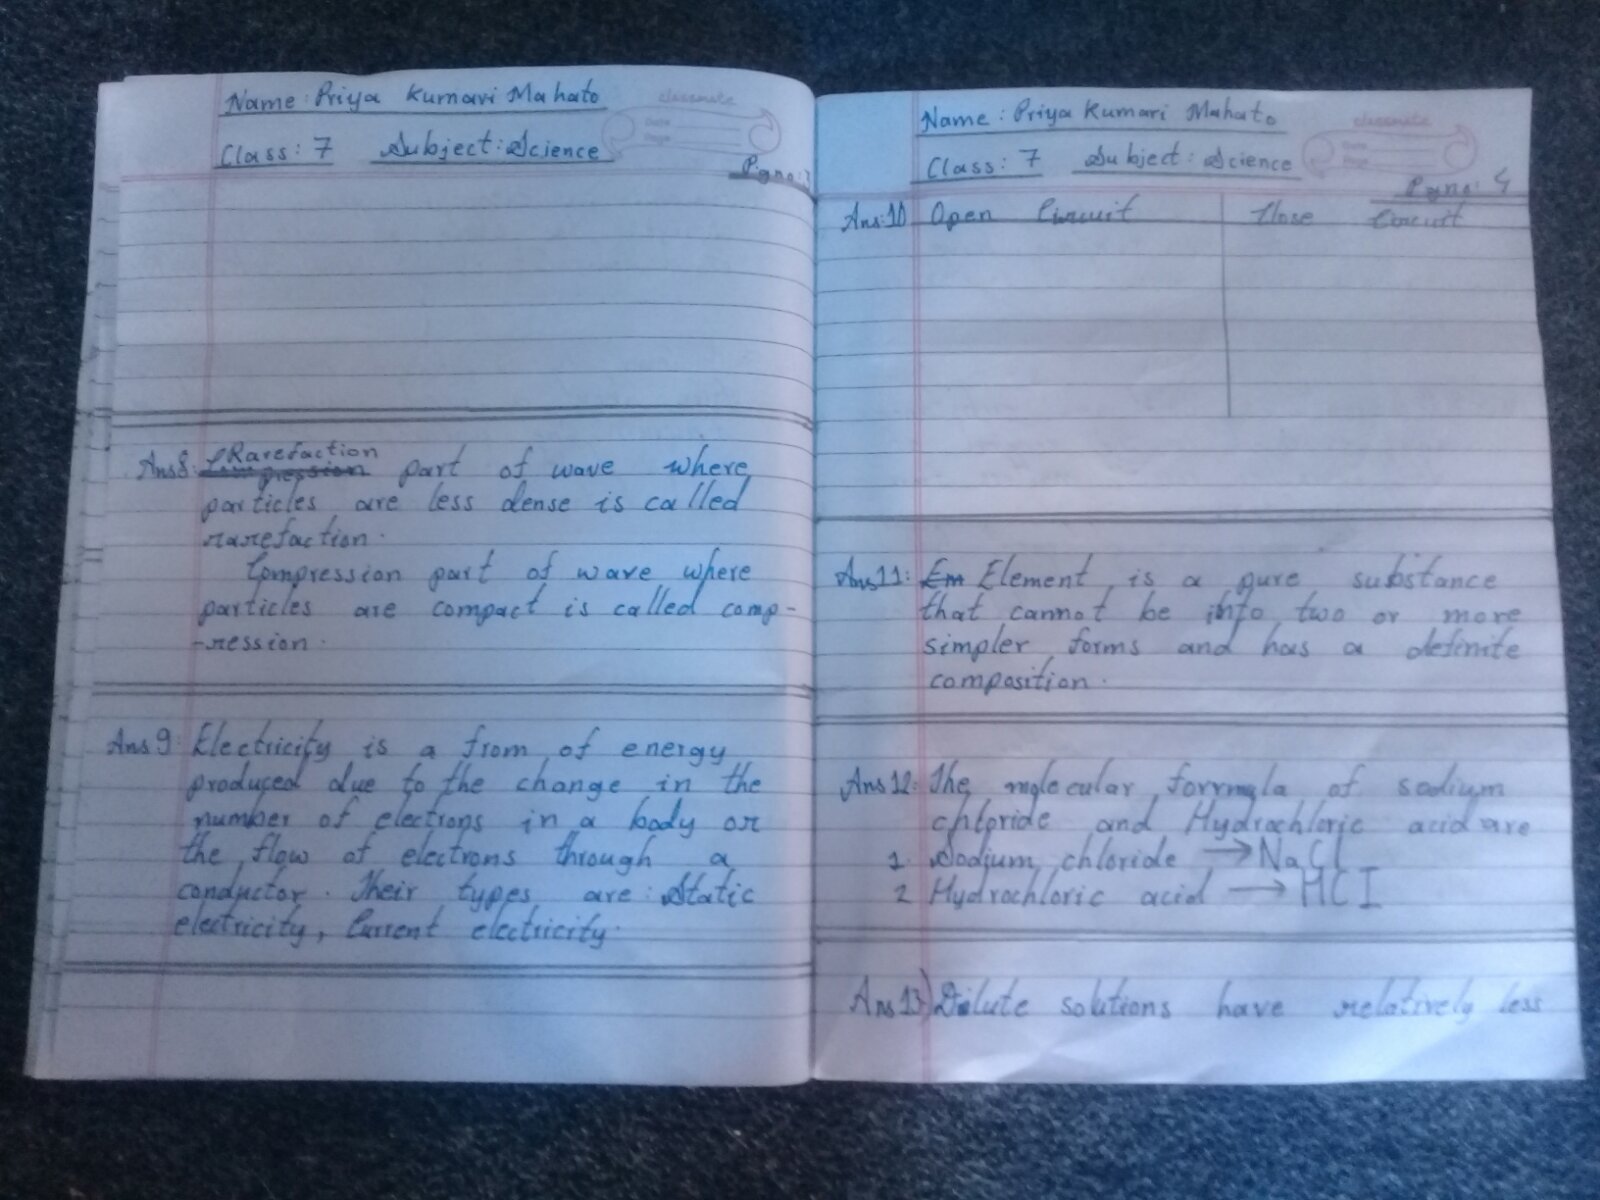 Name: Priya Kumari Mahato
classmate
Date
Page
Class: 7 Subject: Science
Pg no:
Ans8: Rarefaction
Compression part of wave where
particles are less dense is called
rarefaction.
Compression part of wave where
particles are compact is called comp-
-ression.
Ans 9: Electricity is a from of energy
produced due to the change in the
number of electrons in a body or
the flow of electrons through a
conductor. Their types are: Static
electricity, Current electricity.
Name: Priya Kumari Mahato
classmate
Date
Page
Class: 7 Subject: Science
Pg no: 4
Ans:10 Open Circuit Close Circuit
Ans 11: Em Element is a pure substance
that cannot be into two or more
simpler forms and has a definite
composition.
Ans 12: The molecular formula of sodium
chloride and Hydrochloric acid are
1. Sodium chloride → NaCl
2 Hydrochloric acid → HCI
Ans 13) Dilute solutions have relatively less